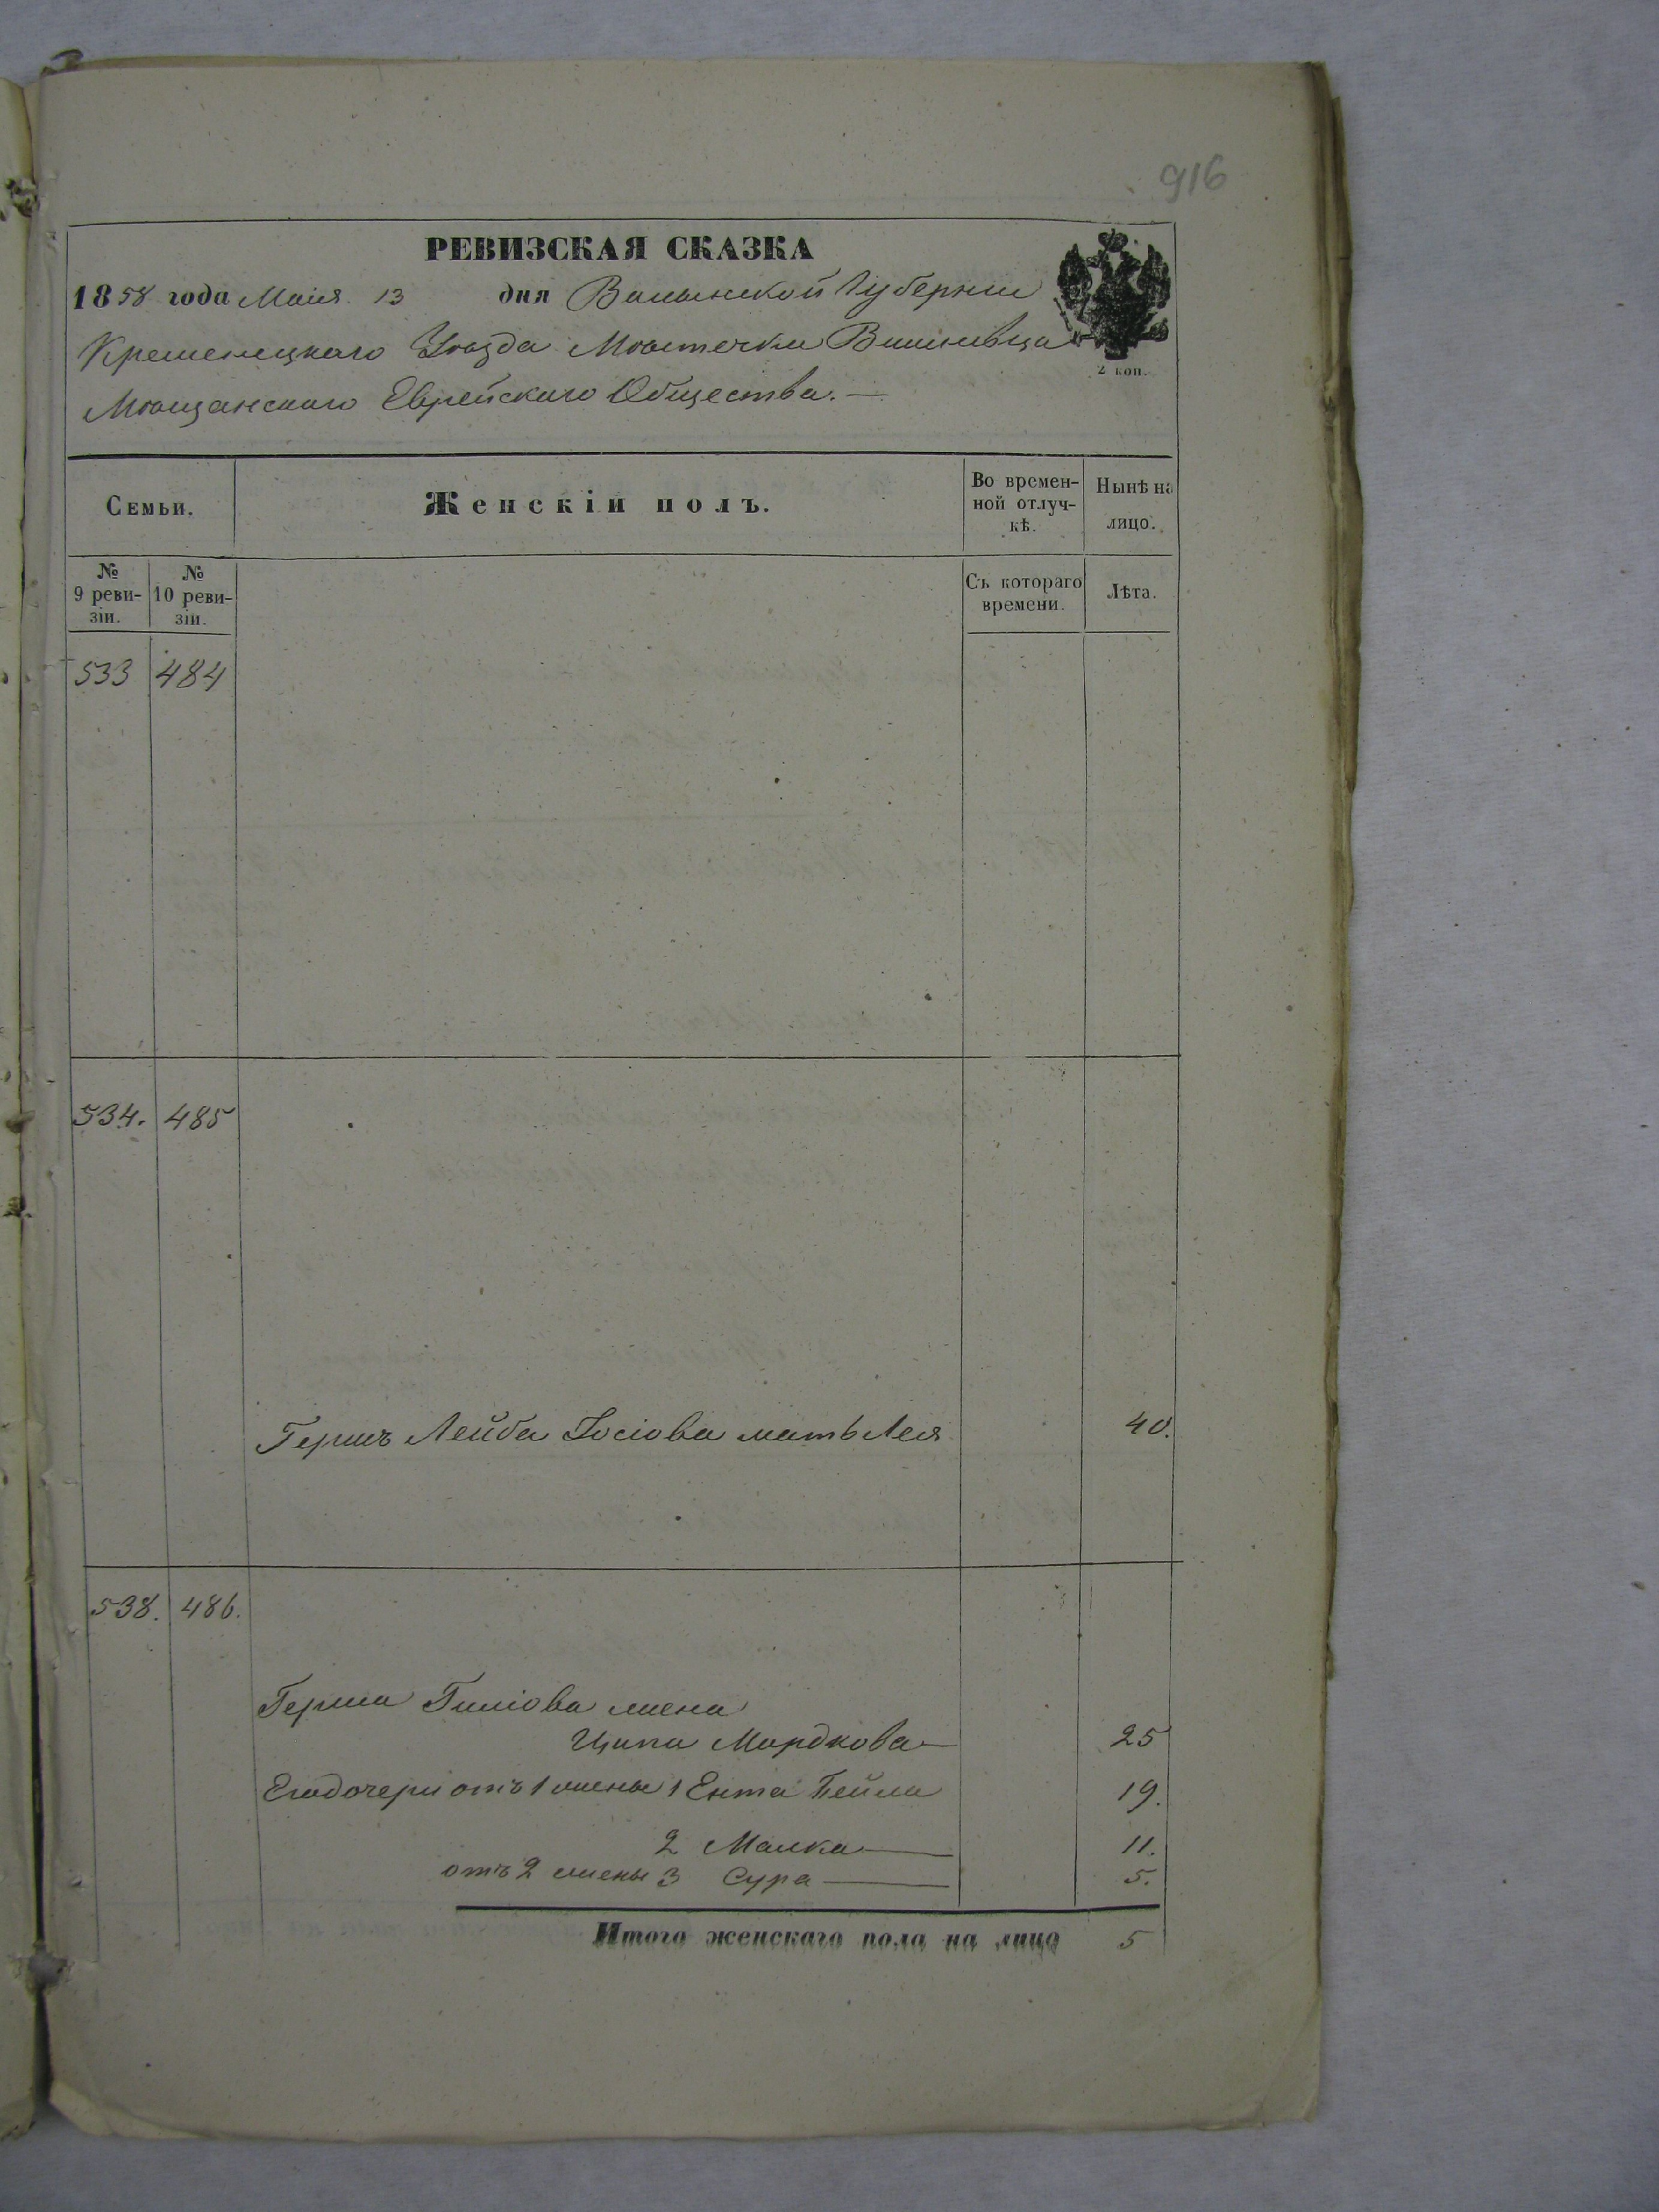 916
РЕВИЗСКАЯ СКАЗКА
1858 года Маія 13 дня Волынской Губерніи
Кременецкаго Уѣзда Мѣстечка Вишневца
2 коп.
Мѣщанскаго Еврейскаго Общества.—
Семьи.
Женскій полъ.
Во времен-
ной отлуч-
кѣ.
Нынѣ на
лицо.
№
9 реви-
зіи.
№
10 реви-
зіи.
Съ котораго
времени.
Лѣта.
533 484
534. 485
Гершъ Лейба Іосіова мать Лея 40.
538. 486.
Герша Гиміова жена
Ципа Мордкова 25
Его дочери отъ 1 жены 1 Ента Бейла 19.
2 Малка 11.
отъ 2 жены 3 Сура 5.
Итого женскаго пола на лицо 5